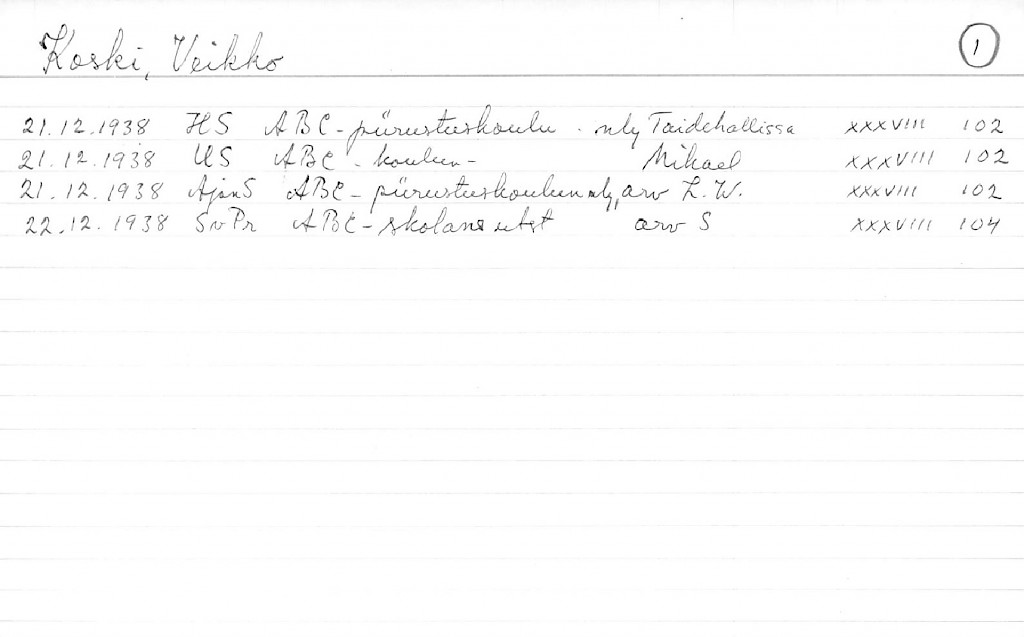 Koski, Veikko 1
21.12.1938 HS ABC-piirustuskoulu. nly Taidehallissa XXXVIII 102
21.12.1938 US ABC-koulun- Mikael XXXVIII 102
21.12.1938 AjanS ABC-piirustuskoulun nly, arv L.W. XXXVIII 102
22.12.1938 SvPr ABC-skolans utst arv S XXXVIII 104